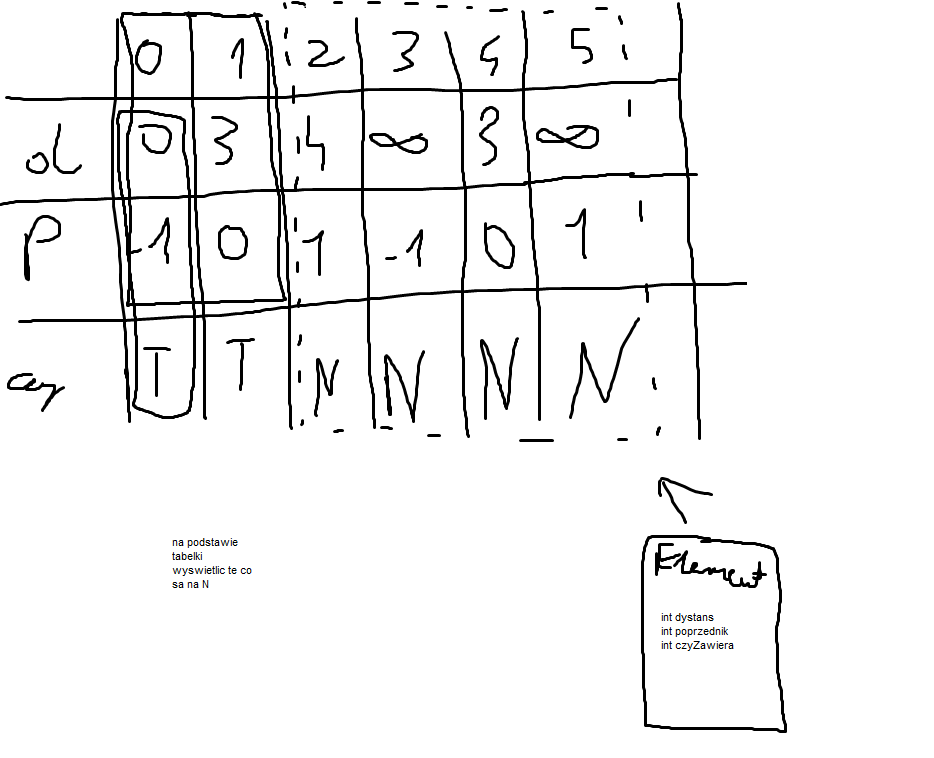 0 1 2 3 4 5
d 0 3 4 ∞ 3 ∞
P -1 0 1 -1 0 1
czy T T N N N N
na podstawie
tabelki
wyswietlic te co
sa na N
Element
int dystans
int poprzednik
int czyZawiera